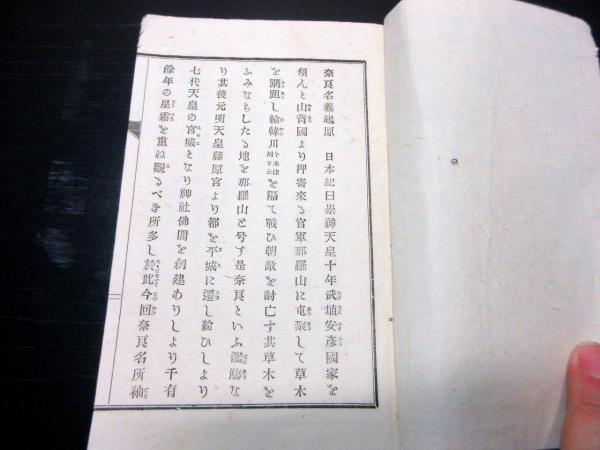 奈良名義起原 日本紀曰崇神天皇十年武埴安彦國家を
傾んと山背國より押寄來る官軍那羅山に屯聚して草木
を蹢跙し輪韓川今木津川ト云を隔て戰ひ朝敵を討亡す其草木を
ふみならしたる地を那羅山と号す是奈良といふ濫觴な
り其後元明天皇藤原宮より都を平城に遷し給ひしより
七代天皇の官城となり神社佛閣を創建ありしより千有
餘年の星霜を重ね觀るべき所多し於此今回奈良名所袖